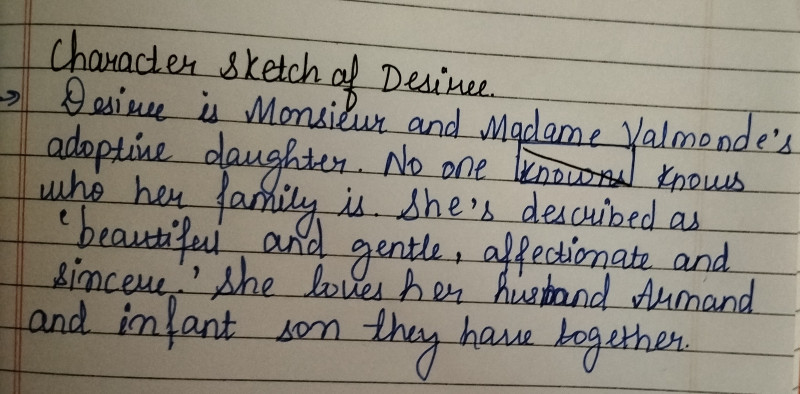 Character sketch of Desiree.
→ Desiree is Monsieur and Madame Valmonde's
adoptive daughter. No one knowns knows
who her family is. She's described as
'beautiful and gentle, affectionate and
sincere.' She loves her husband Armand
and infant son they have together.